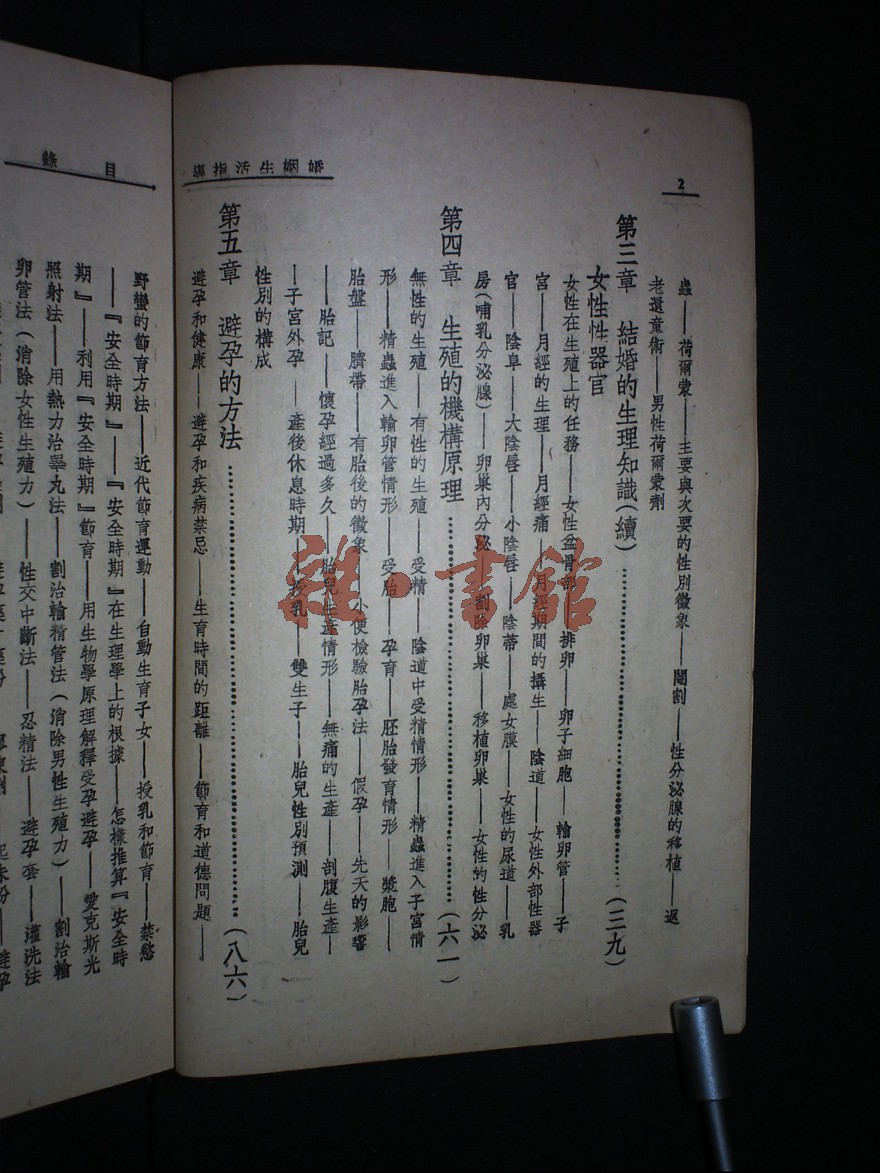 2
婚姻生活指導
蟲——荷爾蒙——主要與次要的性別徵象——閹割——性分泌腺的移植——返
老還童術——男性荷爾蒙劑
第三章　結婚的生理知識(續)……(三九)
女性性器官
女性在生殖上的任務——女性盆骨部——排卵——卵子細胞——輸卵管——子
宮——月經的生理——月經痛——月經期間的攝生——陰道——女性外部性器
官——陰阜——大陰唇——小陰唇——陰蒂——處女膜——女性的尿道——乳
房(哺乳分泌腺)——卵巢內分泌——割除卵巢——移植卵巢——女性的性分泌
第四章　生殖的機構原理……(六一)
無性的生殖——有性的生殖——受精——陰道中受精情形——精蟲進入子宮情
形——精蟲進入輸卵管情形——受胎——孕育——胚胎發育情形——漿胞——
胎盤——臍帶——有胎後的徵象——小便檢驗胎孕法——假孕——先天的影響
——胎記——懷孕經過多久——胎兒生產情形——無痛的生產——剖腹生產——
——子宮外孕——產後休息時期——授乳——雙生子——胎兒性別預測——胎兒
性別的構成
第五章　避孕的方法……(八六)
避孕和健康——避孕和疾病禁忌——生育時間的距離——節育和道德問題——
目錄
野蠻的節育方法——近代節育運動——自動生育子女——授乳和節育——禁慾
——『安全時期』——『安全時期』在生理學上的根據——怎樣推算『安全時
期』——利用『安全時期』節育——用生物學原理解釋受孕避孕——愛克斯光
照射法——用熱力治睪丸法——割治輸精管法(消除男性生殖力)——割治輸
卵管法(消除女性生殖力)——性交中斷法——忍精法——避孕套——灌洗法
雜·書館